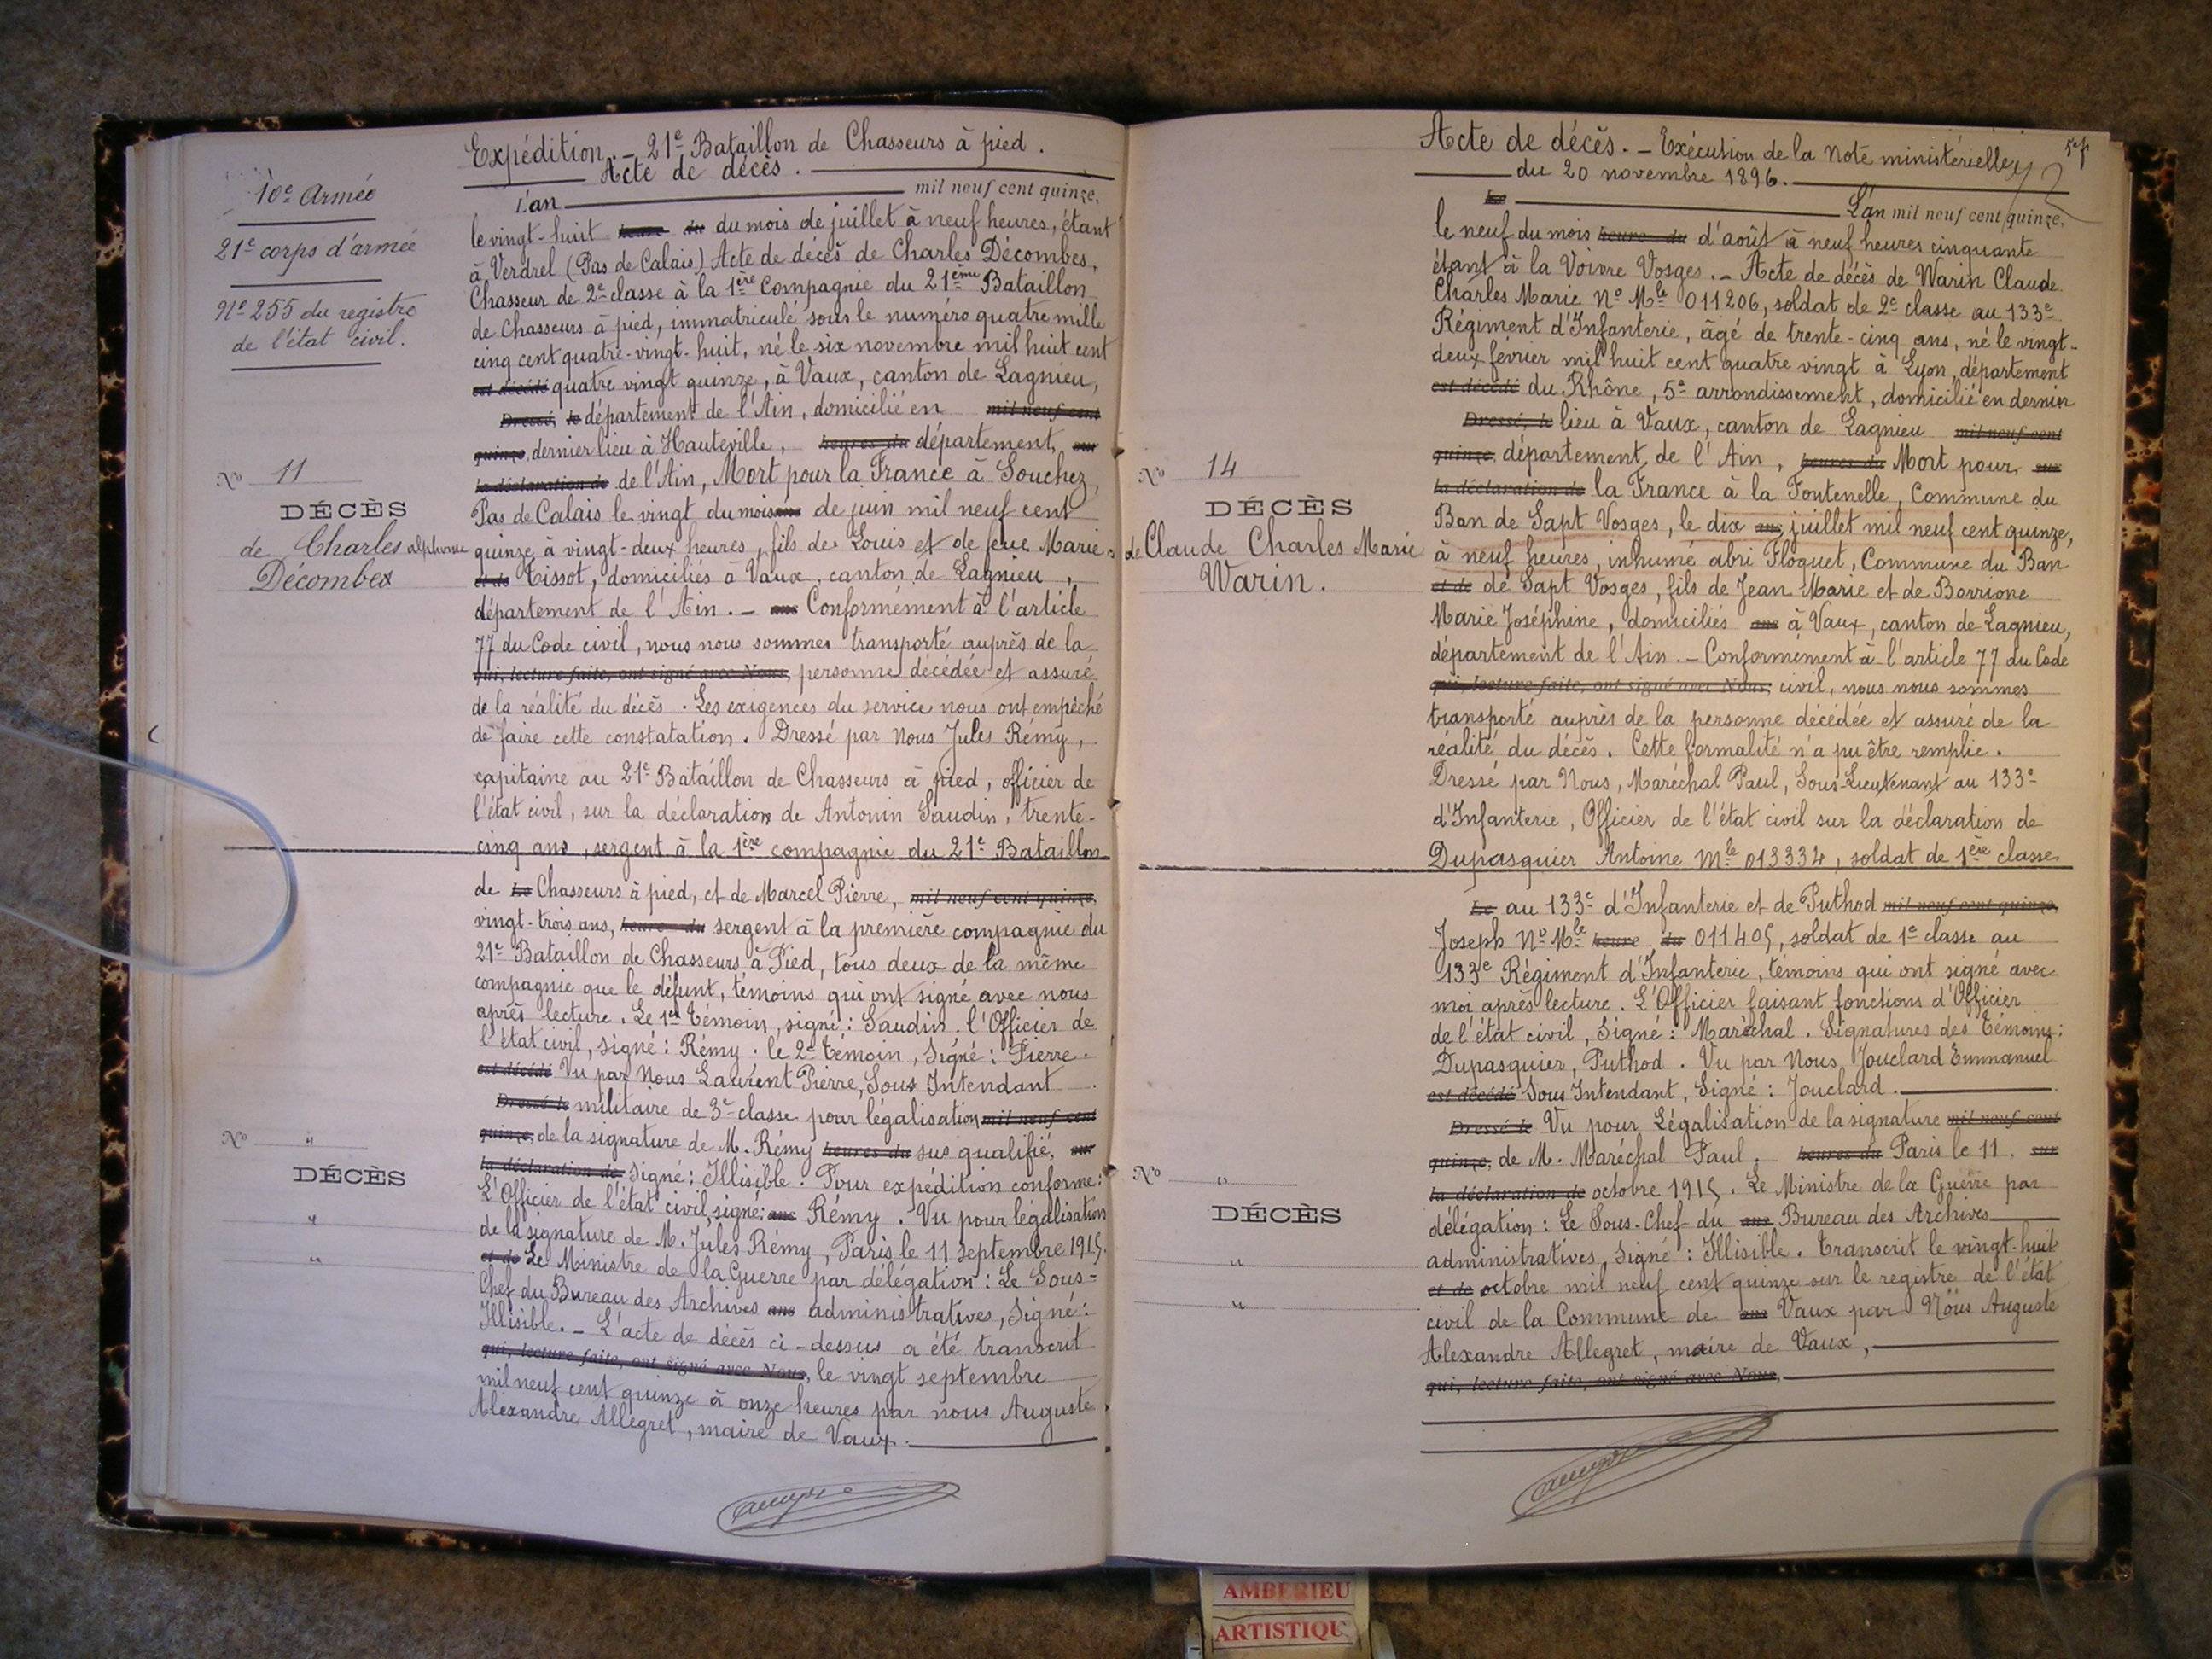 10e Armée
21e corps d'armée
No 255 du registre
de l'état civil.
No 11
DÉCÈS
de Charles alphonse
Décombes
No "
DÉCÈS
"
"
Expédition. - 21e Bataillon de Chasseurs à pied.
Acte de décès.
L'an mil neuf cent quinze,
le vingt-huit heure du du mois de juillet à neuf heures, étant
à Verdrel (Pas de Calais) Acte de décès de Charles Décombes,
Chasseur de 2e classe à la 1ère Compagnie du 21ème Bataillon
de Chasseurs à pied, immatriculé sous le numéro quatre mille
cinq cent quatre-vingt-huit, né le six novembre mil huit cent
est décédé quatre vingt quinze, à Vaux, canton de Lagnieu,
Dressé, le département de l'Ain, domicilié en mil neuf cent
quinze, dernier lieu à Hauteville, heures du département, sur
la déclaration de de l'Ain, Mort pour la France à Souchez,
Pas de Calais le vingt du mois ans de juin mil neuf cent
quinze à vingt-deux heures, fils de Louis et de feue Marie
et de Tissot, domiciliés à Vaux, canton de Lagnieu,
département de l'Ain. - ans Conformément à l'article
77 du Code civil, nous nous sommes transporté auprès de la
qui, lecture faite, ont signé avec Nous, personne décédée et assuré
de la réalité du décès. Les exigences du service nous ont empêché
de faire cette constatation. Dressé par nous Jules Rémy,
capitaine au 21e Bataillon de Chasseurs à pied, officier de
l'état civil, sur la déclaration de Antonin Gaudin, trente-
cinq ans, sergent à la 1ère compagnie du 21e Bataillon
de Le Chasseurs à pied, et de Marcel Pierre, mil neuf cent quinze,
vingt-trois ans, heure du sergent à la première compagnie du
21e Bataillon de Chasseurs à Pied, tous deux de la même
compagnie que le défunt, témoins qui ont signé avec nous
après lecture. Le 1er Témoin, signé: Gaudin. l'Officier de
l'état civil, signé: Rémy. le 2e Témoin, Signé: Pierre.
est décédé Vu par Nous Laurent Pierre, Sous Intendant
Dressé le militaire de 3e classe pour légalisation mil neuf cent
quinze, de la signature de M. Rémy heures du sus qualifié, sur
la déclaration de Signé: Illisible. Pour expédition conforme:
L'Officier de l'état civil, signé: ans Rémy. Vu pour légalisation
de la signature de M. Jules Rémy, Paris le 11 septembre 1915.
et de Le Ministre de la Guerre par délégation: Le Sous-
Chef du Bureau des Archives ans administratives, Signé:
Illisible. - L'acte de décès ci-dessus a été transcrit
qui, lecture faite, ont signé avec Nous, le vingt septembre
mil neuf cent quinze à onze heures par nous Auguste
Alexandre Allegret, maire de Vaux.
No 14
DÉCÈS
de Claude Charles Marie
Warin.
No "
DÉCÈS
"
"
Acte de décès. - Exécution de la Note ministérielle
du 20 novembre 1896.
Le L'an mil neuf cent quinze,
le neuf du mois heure du d'août à neuf heures cinquante
étant à la Voivre Vosges. - Acte de décès de Warin Claude
Charles Marie No Mle 011206, soldat de 2e classe au 133e
Régiment d'Infanterie, âgé de trente-cinq ans, né le vingt-
deux février mil huit cent quatre vingt à Lyon, département
est décédé du Rhône, 5e arrondissement, domicilié en dernier
Dressé, le lieu à Vaux, canton de Lagnieu mil neuf cent
quinze, département de l'Ain, heures du Mort pour sur
la déclaration de la France à la Fontenelle, Commune du
Ban de Sapt Vosges, le dix ans juillet mil neuf cent quinze,
à neuf heures, inhumé abri Floquet, Commune du Ban
et de de Sapt Vosges, fils de Jean Marie et de Berrione
Marie Joséphine, domiciliés ans à Vaux, canton de Lagnieu,
département de l'Ain. - Conformément à l'article 77 du Code
qui, lecture faite, ont signé avec Nous, civil, nous nous sommes
transporté auprès de la personne décédée et assuré de la
réalité du décès. Cette formalité n'a pu être remplie.
Dressé par Nous, Maréchal Paul, Sous-Lieutenant au 133e
d'Infanterie, Officier de l'état civil sur la déclaration de
Dupasquier Antoine Mle 013334, soldat de 1ère classe
Le au 133e d'Infanterie et de Puthod mil neuf cent quinze,
Joseph No Mle heure du 011405, soldat de 1e classe au
133e Régiment d'Infanterie, témoins qui ont signé avec
moi après lecture. L'Officier faisant fonctions d'Officier
de l'état civil, Signé: Maréchal. Signatures des Témoins:
Dupasquier, Puthod. Vu par Nous, Jouclard Emmanuel
est décédé Sous Intendant, Signé: Jouclard.
Dressé le Vu pour Légalisation de la signature mil neuf cent
quinze, de M. Maréchal Paul. heures du Paris le 11. sur
la déclaration de octobre 1915. Le Ministre de la Guerre par
délégation: Le Sous-Chef du ans Bureau des Archives
administratives, Signé: Illisible. Transcrit le vingt-huit
et de octobre mil neuf cent quinze sur le registre de l'état
civil de la Commune de ans Vaux par Nous Auguste
Alexandre Allegret, maire de Vaux,
qui, lecture faite, ont signé avec Nous,
AMBERIEU
ARTISTIQU